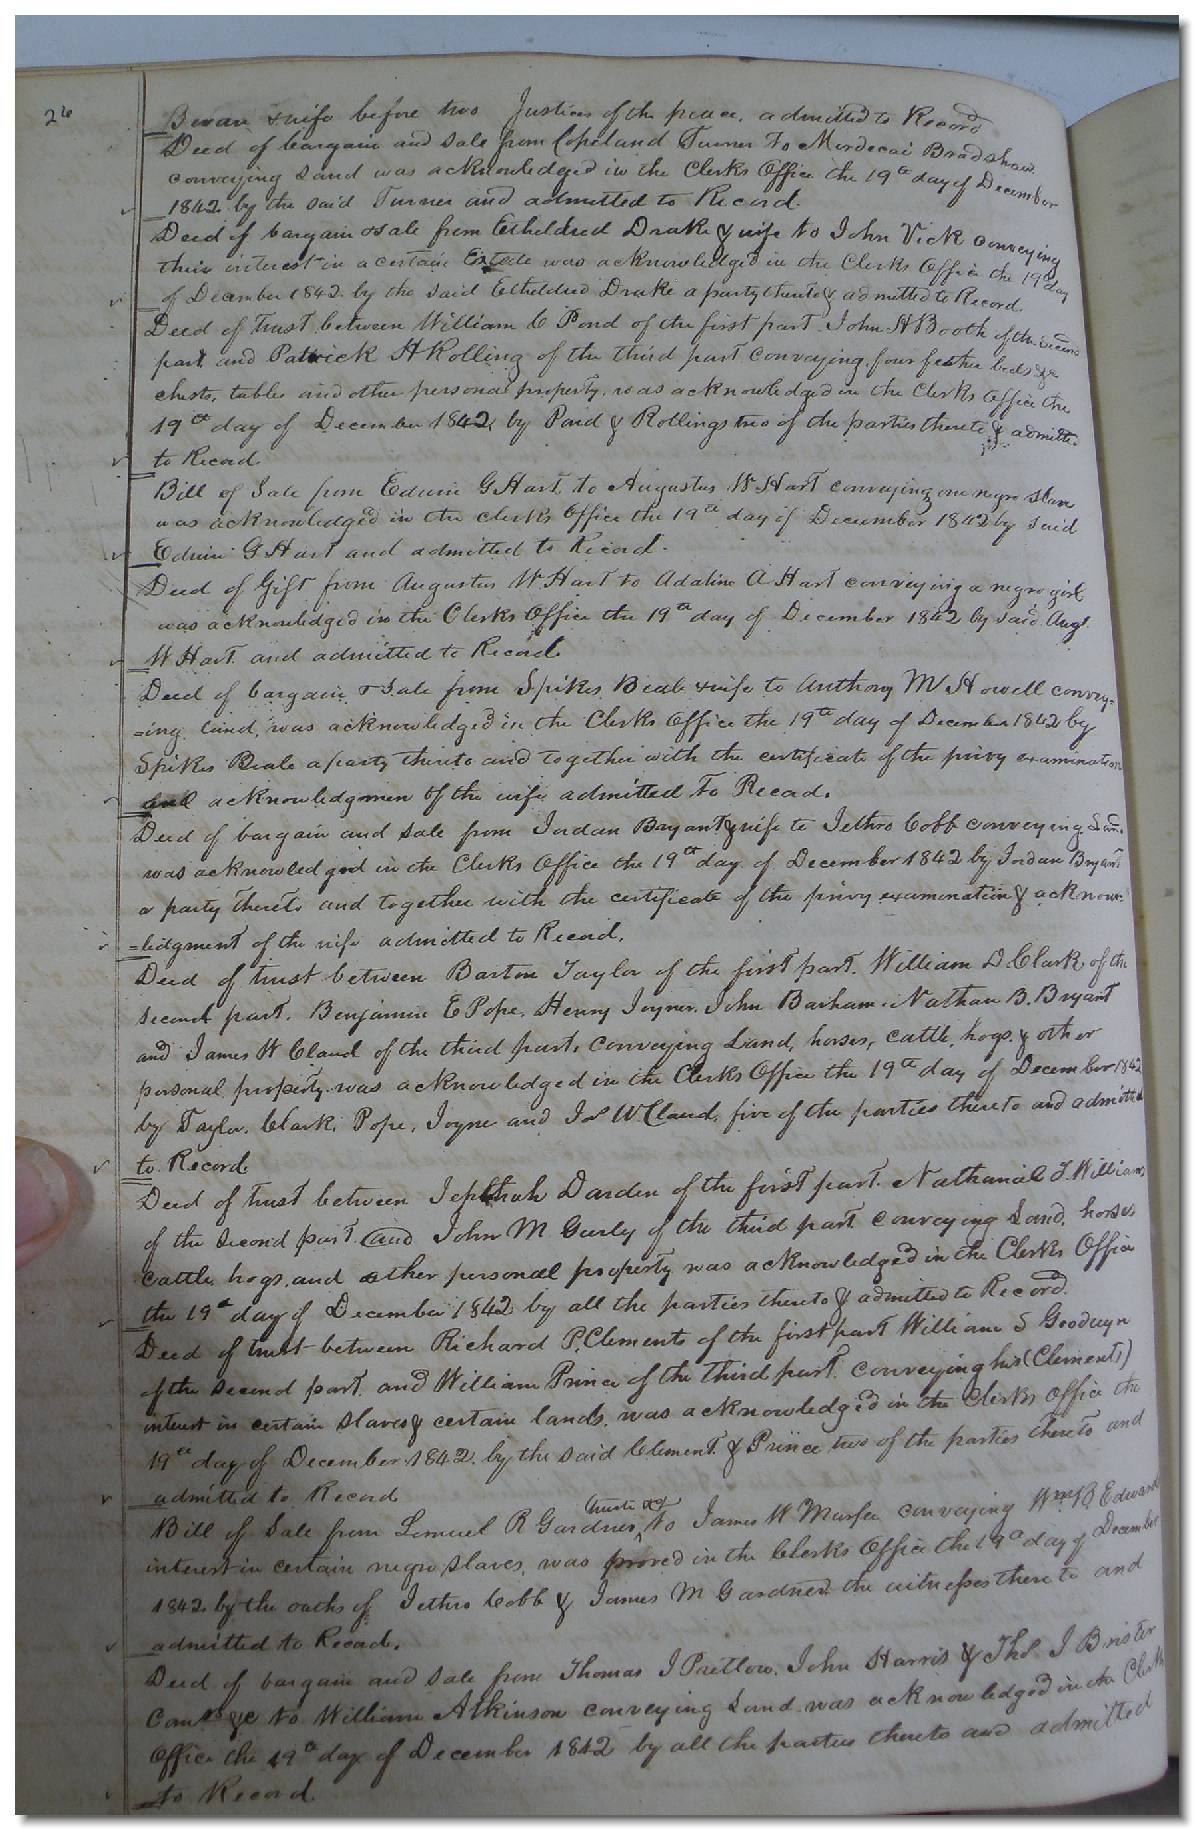 26
Bevan & wife before two Justices of the peace, admitted to Record
Deed of bargain and sale from Copeland Turner to Mordecai Bradshaw
conveying Land was acknowledged in the Clerks Office the 19th day of December
1842 by the said Turner and admitted to Record.
Deed of bargain & sale from Etheldred Drake & wife to John Vick conveying
their interest in a certain Estate was acknowledged in the Clerks Office the 19th day
of December 1842 by the said Etheldred Drake a party thereto & admitted to Record.
Deed of trust between William C Pond of the first part. John A Booth of the second
part and Patrick H Rolling of the third part conveying four feather beds &c
chests, tables and other personal property, was acknowledged in the Clerks Office the
19th day of December 1842 by Pond & Rollings two of the parties thereto & admitted
to Record.
Bill of Sale from Edwin G Hart to Augustus W Hart conveying one negro slave
was acknowledged in the clerks Office the 19th day of December 1842 by said
Edwin G Hart and admitted to Record.
Deed of Gift from Augustus W Hart to Adaline A Hart conveying a negro girl
was acknowledged in the Clerks Office the 19th day of December 1842 by said Augs.
W Hart and admitted to Record.
Deed of bargain & Sale from Spikes Beale & wife to Anthony M Howell convey-
=ing Land, was acknowledged in the Clerks Office the 19th day of December 1842 by
Spikes Beale a party thereto and together with the certificate of the privy examination
and acknowledgmen of the wife admitted to Recad.
Deed of bargain and sale from Jordan Bryant & wife to Jethro Cobb conveying Land.
was acknowledged in the Clerks Office the 19th day of December 1842 by Jordan Bryant
a party thereto and together with the certificate of the privy examination & acknow-
=ledgment of the wife admitted to Record.
Deed of trust between Barton Taylor of the first part. William D. Clark of the
second part. Benjamin E Pope, Henry Joyner. John Barham. Nathan B. Bryant
and James W Claud of the third part, conveying Land, horses, cattle, hogs, & other
personal property was acknowledged in the Clerks Office the 19th day of December 1842
by Taylor, Clark, Pope, Joyne and Js W. Claud, five of the parties thereto and admitted
to Record
Deed of trust between Jepthah Darden of the first part. Nathaniel T. Williams
of the second part and John M Gurly of the third part conveying Land, horses
cattle, hogs, and other personal property was acknowledged in the Clerks Office
the 19th day of December 1842 by all the parties thereto & admitted to Record.
Deed of trust between Richard P. Clements of the first part William S Goodwyn
of the second part. and William Prince of the third part. conveying his (Clements)
interest in certain slaves & certain lands, was acknowledged in the Clerks Office the
19th day of December 1842. by the said Clement. & Prince two of the parties thereto and
admitted to Record
trustee &c
Bill of Sale from Lemuel R Gardner, to James W Murfee conveying Wm B Edwards
interest in certain negro slaves, was proved in the Clerks Office the 19th day of December
1842 by the oaths of Jethro Cobb & James M Gardner the witnesses thereto and
admitted to Recad.
Deed of bargain and sale from Thomas J Pretlow. John Harris & Ths. J Brister
Comrs &c to William Atkinson conveying Land was acknowledged in the Clerks
Office the 19th day of December 1842 by all the parties thereto and admitted
to Record